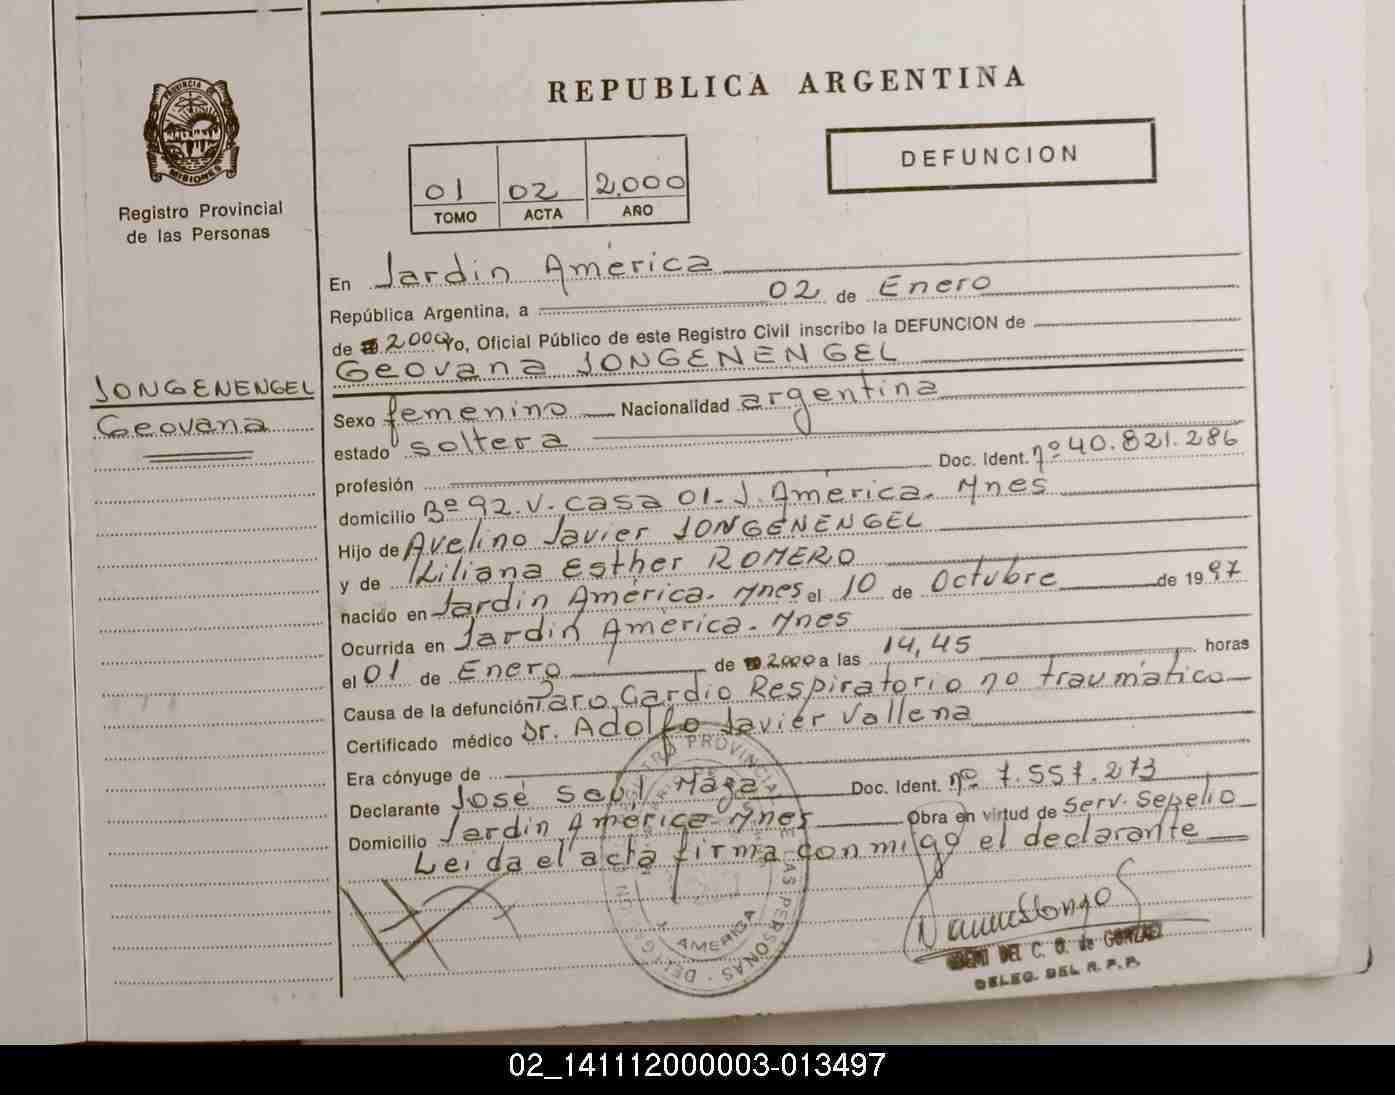 REPUBLICA ARGENTINA
DEFUNCION
PROVINCIA DE
MISIONES
Registro Provincial
de las Personas
01 02 2.000
TOMO ACTA AÑO
En Jardin América
República Argentina, a 02 de Enero
de 2000 Yo, Oficial Público de este Registro Civil inscribo la DEFUNCION de
Geovana JONGENENGEL
JONGENENGEL
Geovana
Sexo femenino Nacionalidad argentina
estado soltera
profesión Doc. Ident. nº 40.821.286
domicilio Bº 92.V. casa 01-J. América. Mnes
Hijo de Avelino Javier JONGENENGEL
y de Liliana Esther ROMERO
nacido en Jardin América. Mnes el 10 de Octubre de 1997
Ocurrida en Jardin América. Mnes
el 01 de Enero de 2.000 a las 14,45 horas
Causa de la defunción Paro Cardio Respiratorio no traumático
Certificado médico Dr. Adolfo Javier Vallena
Era cónyuge de
Declarante José Maza Doc. Ident. nº 7.551.273
Domicilio Jardin América Mnes Obra en virtud de Serv. Sepelio
Leida el acta firma conmigo el declarante
REGISTRO PROVINCIAL DE LAS PERSONAS
AMERICA
DEL C. G. de GONZALEZ
DELEG. DEL R. P. P.
02_141112000003-013497